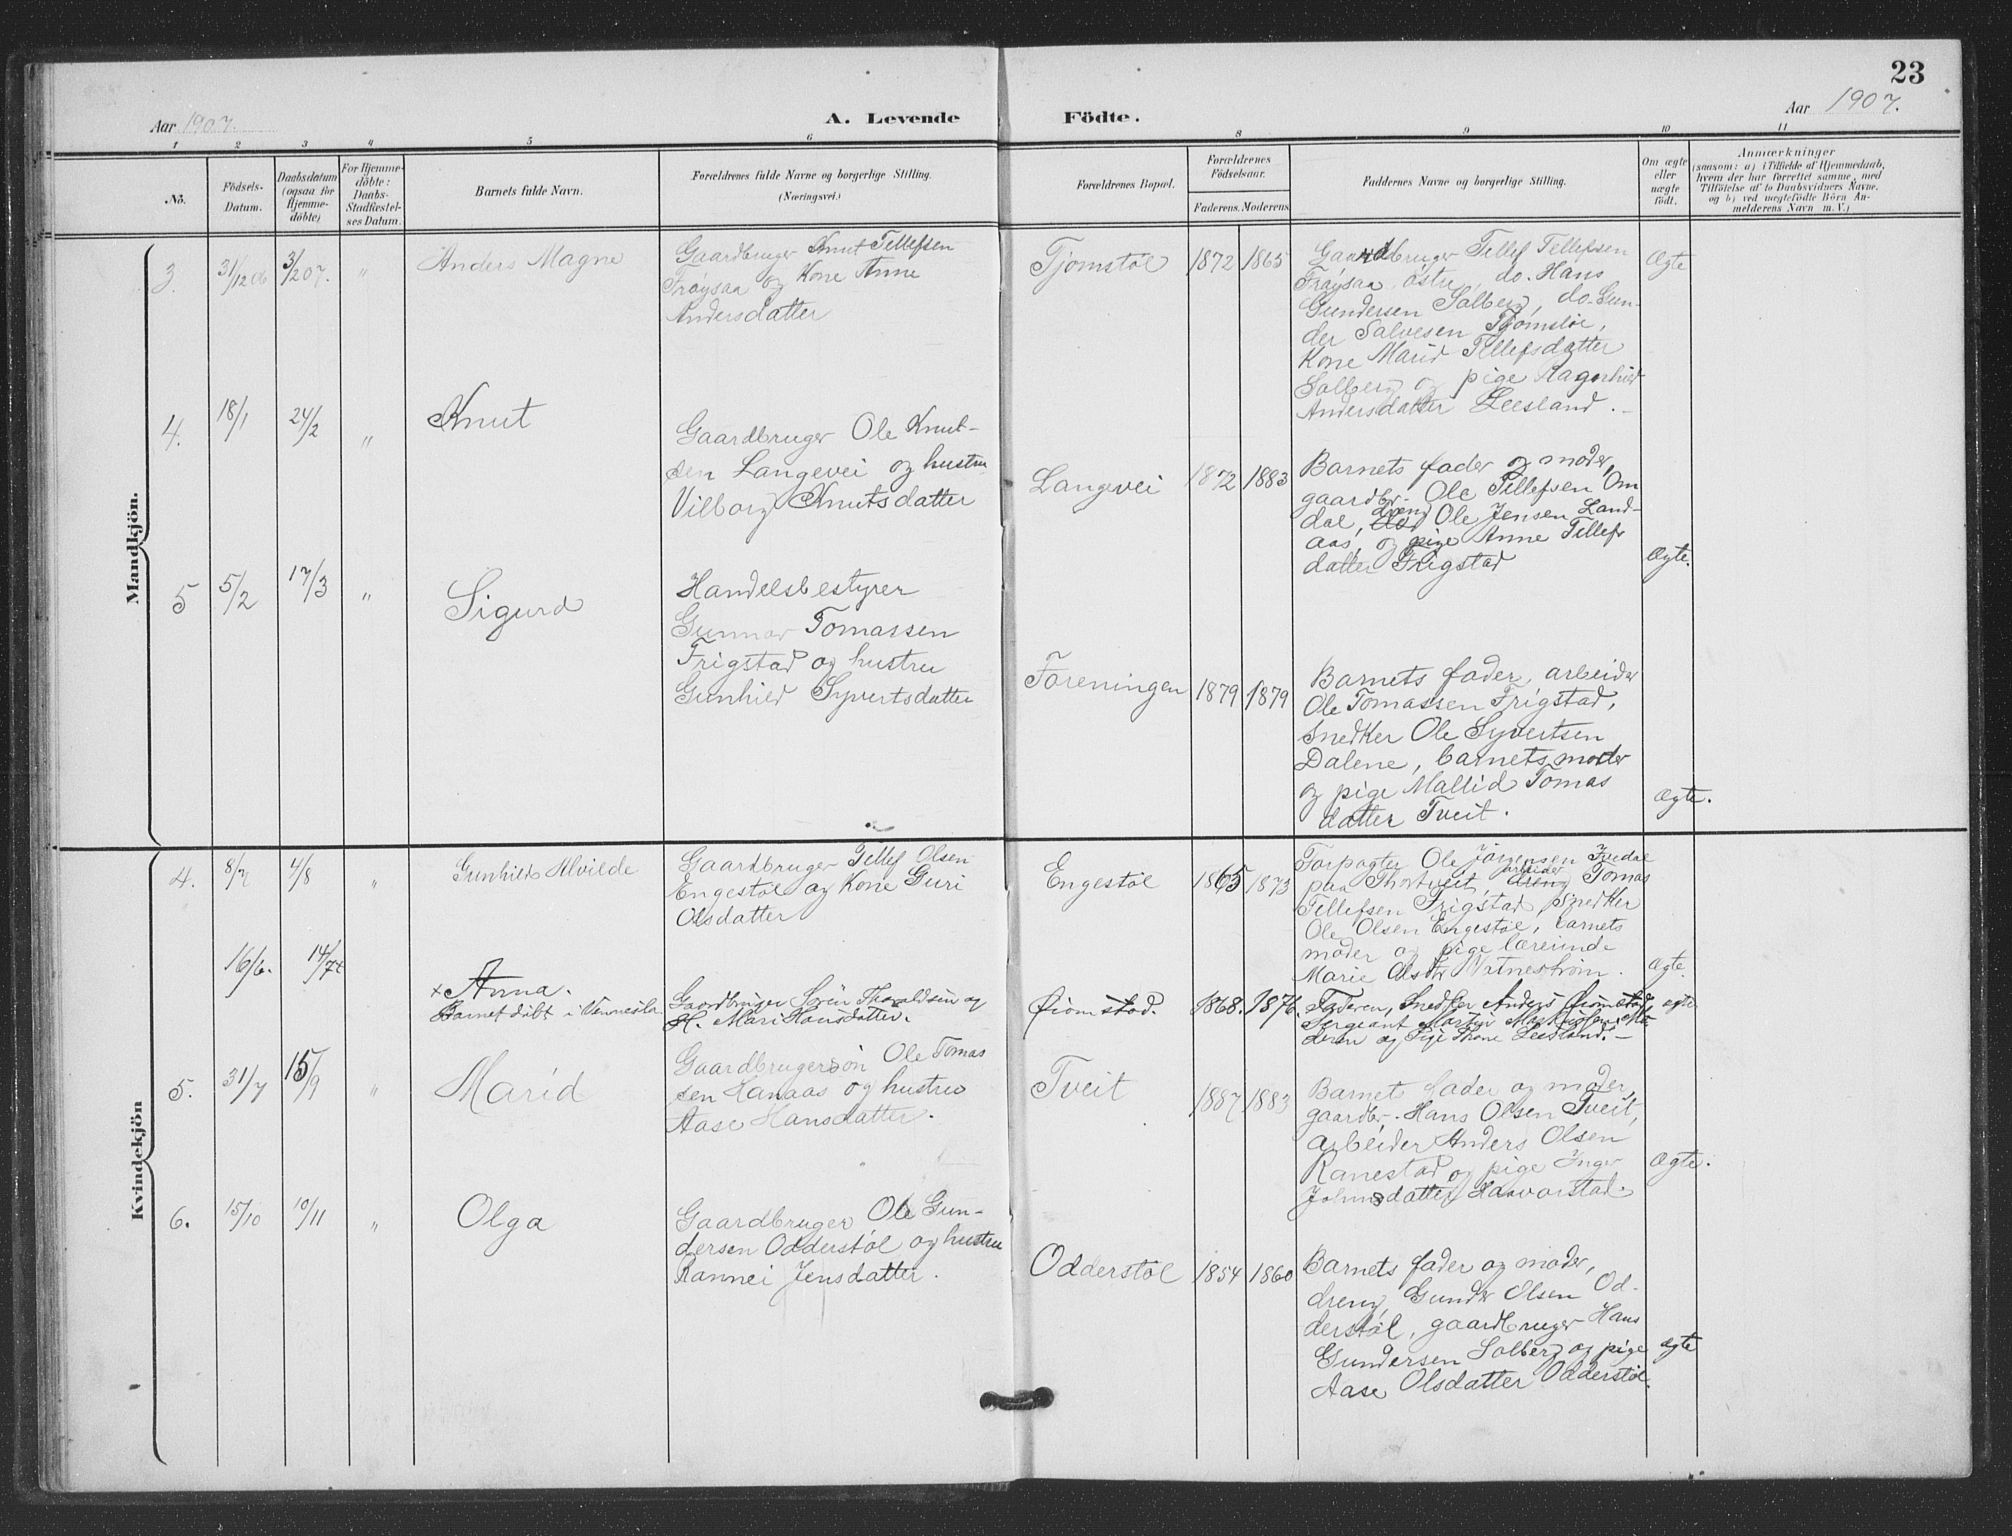 23
Aar 1907.
A. Levende
Födte.
Aar 1907.
1 2 3 4 5 6 8 9 10 11
No.
Födsels-
Datum.
Daabsdatum
(ogsaa for
Hjemme-
döbte)
For Hjemme-
döbte:
Daabs-
Stadfæstel-
ses Datum.
Barnets fulde Navn.
Forældrenes fulde Navne og borgerlige Stilling.
(Næringsvei.)
Forældrenes Bopæl.
Forældrenes
Födselsaar.
Faderens. Moderens
Faddernes Navne og borgerlige Stilling.
Om ægte
eller
uægte
födt.
Anmærkninger
(saasom: a) i Tilfælde af Hjemmedaab,
hvem der har forrettet samme, med
Tilföielse af to Daabsvidners Navne.
og b) ved uægtefödte Börn An-
melderens Navn m. V.)
Mandkjön.
3. 31/12 06 3/2 07. " Anders Magne
Gaardbruger Knut Tellefsen
Frøysaa og Kone Anne
Andersdatter
Tjomstøl 1872 1865
Gaardbruger Tellef Tellefsen
Frøysaa østre, do. Hans
Gundersen Solberg, do. Gun-
der Salvesen Tjomstøl,
Kone Marid Tellefsdatter
Solberg og pige Ragnhild
Andersdatter Leesland.
Ægte
4. 18/1 24/2 " Knut
Gaardbruger Ole Knut-
sen Langevei og hustru
Vilborg Knutsdatter
Langevei 1872 1883
Barnets fader og moder,
gaardbr. Ole Tellefsen Om
dal, dreng Ole Jensen Land-
aas, og pige Anne Tellefs
datter Frigstad
Ægte.
5 5/2 17/3 " Sigurd
Handelsbestyrer
Gunnar Tomassen
Frigstad og hustru
Gunhild Syvertsdatter
Foreningen 1879 1879
Barnets fader, arbeider
Ole Tomassen Frigstad,
Snedker Ole Syvertsen
Dalene, barnets moder
og pige Mallid Tomas
datter Tveit.
Ægte.
Kvindekjön
4. 8/7 4/8 " Gunhild Alvilde
Gaardbruger Tellef Olsen
Engestøl og Kone Guri
Olsdatter
Engestøl 1865 1873
Forpagter Ole Jørgensen Ivedal
paa Thortveit, arbeider Tomas
Tellefsen Frigstad, Snedker
Ole Olsen Engestøl, barnets
moder og pige lærerinde
Marie Olsdtr Vatnestrøm.
Ægte.
16/6. 14/7
x Anna.
Barnet døbt i Vennesla.
Gaardbruger Søren Thoraldsen og
H. Mari Hansdatter.
Øiomstad. 1868. 1876.
Faderen, Snedker Anders Øiomstad
Sergeant Martin
deren og Pige Leesland.
ægte
5. 31/7 15/9 " Marid
Gaardbrugersøn Ole Tomas
sen Hanaas og hustru
Aase Hansdatter.
Tveit 1887 1883
Barnets fader og moder,
gaardbr. Hans Olsen Tveit,
arbeider Anders Olsen
Ranestad og pige Inger
Johnsdatter Haavorstad.
Ægte.
6. 15/10 10/11 " Olga
Gaardbruger Ole Gun-
dersen Odderstøl og hustru
Rannei Jensdatter.
Odderstøl 1854 1860
Barnets fader og moder,
dreng Gunder Olsen Od-
derstøl, gaardbruger Hans
Gundersen Solberg og pige
Aase Olsdatter Odderstøl.
ægte